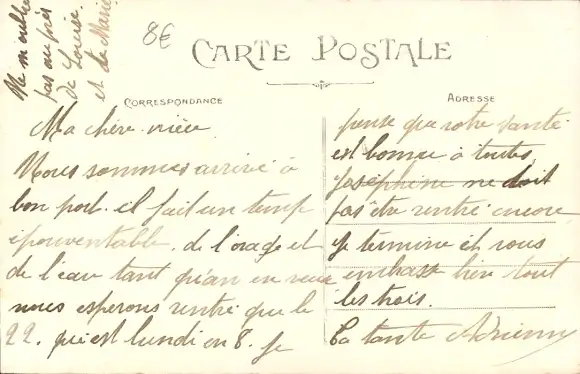 Ne m'oublie
pas auprès
de Louise
et de Marie
8€
CARTE POSTALE
CORRESPONDANCE
ADRESSE
Ma chère nièce
Nous sommes arrivé à
bon port. il fait un temp
épouventable. de l'orage et
de l'eau tant qu'an en veux
nous esperons rentré que le
22. qui est lundi en 8. Je
pense que votre santé
est bonne à toutes
Joséphine ne doit
pas être rentré encore
Je termine et vous
embasse bien tout
les trois.
Ta tante Adrienne